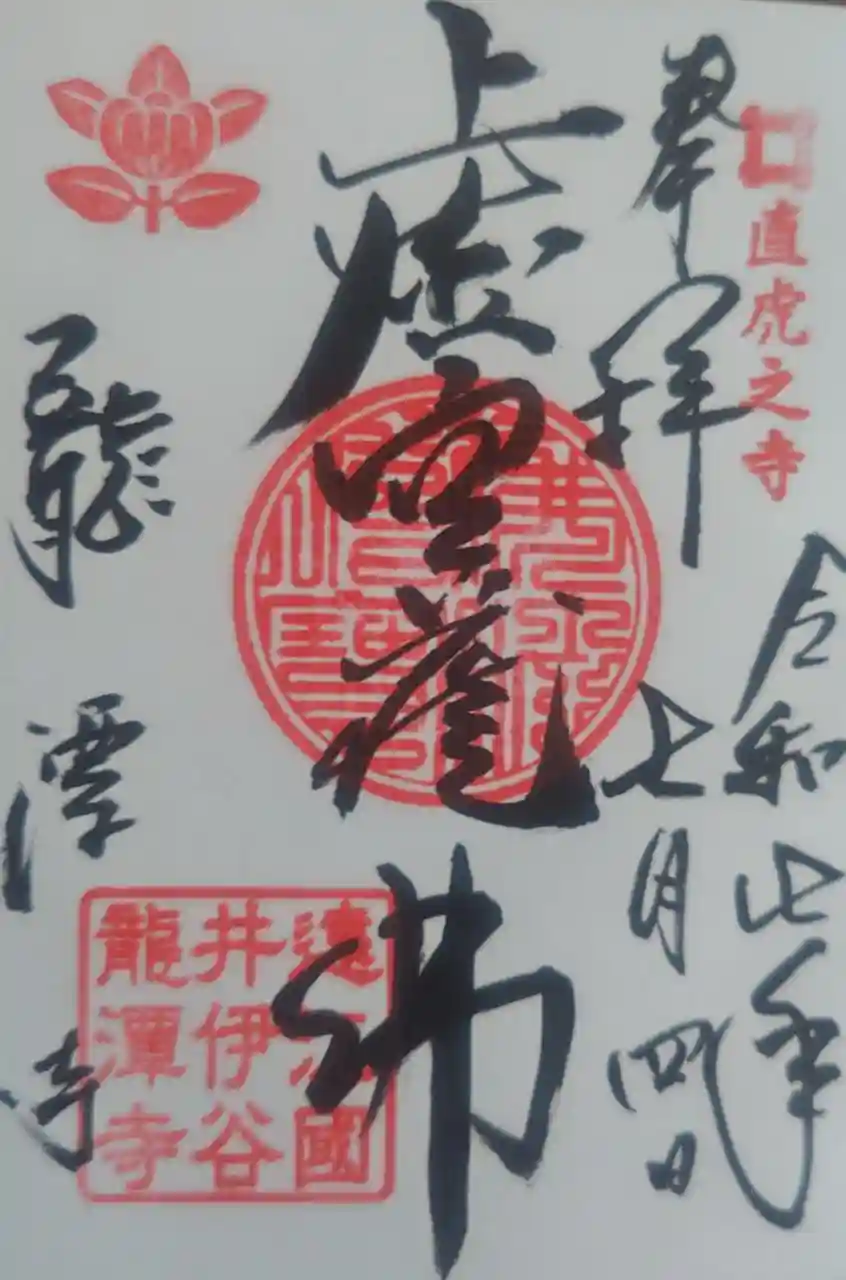 直虎之寺
奉拝
令和七年
七月四日
上
虚空蔵
佛
龍潭寺
遠江國
井伊谷
龍潭寺